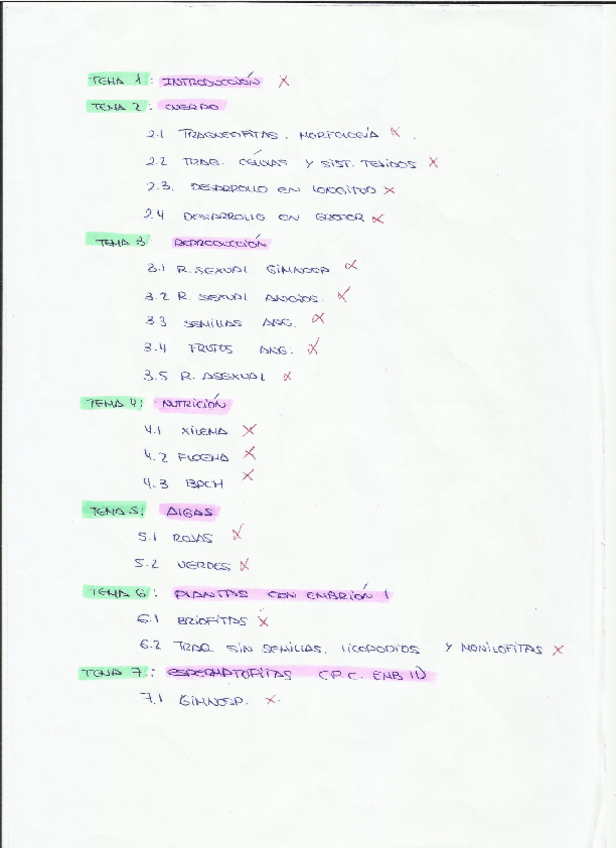 TEMA 1: INTRODUCCIÓN X
TEMA 2: CUERPO
2.1 TRAQUEOFITAS. MORFOLOGÍA X.
2.2 TRAQ. CÉLULAS Y SIST. TEJIDOS X
2.3. DESARROLLO EN LONGITUD X
2.4 DESARROLLO EN GROSOR X
TEMA 3 REPRODUCCIÓN
3.1 R. SEXUAL GIMNOSP X
3.2 R. SEXUAL ANGIOS. X
3.3 SEMILLAS ANG. X
3.4 FRUTOS ANG. X
3.5 R. ASEXUAL X
TEMA 4: NUTRICIÓN
4.1 XILEMA X
4.2 FLOEMA X
4.3 BACH X
TEMA 5: ALGAS
5.1 ROJAS X
5.2 VERDES X
TEMA 6: PLANTAS CON EMBRIÓN I
6.1 BRIOFITAS X
6.2 TRAQ SIN SEMILLAS. LICOPODIOS Y MONILOFITAS X
TEMA 7: ESPERMATOFITAS (P.C. EMB II)
7.1 GIMNOSP. X.